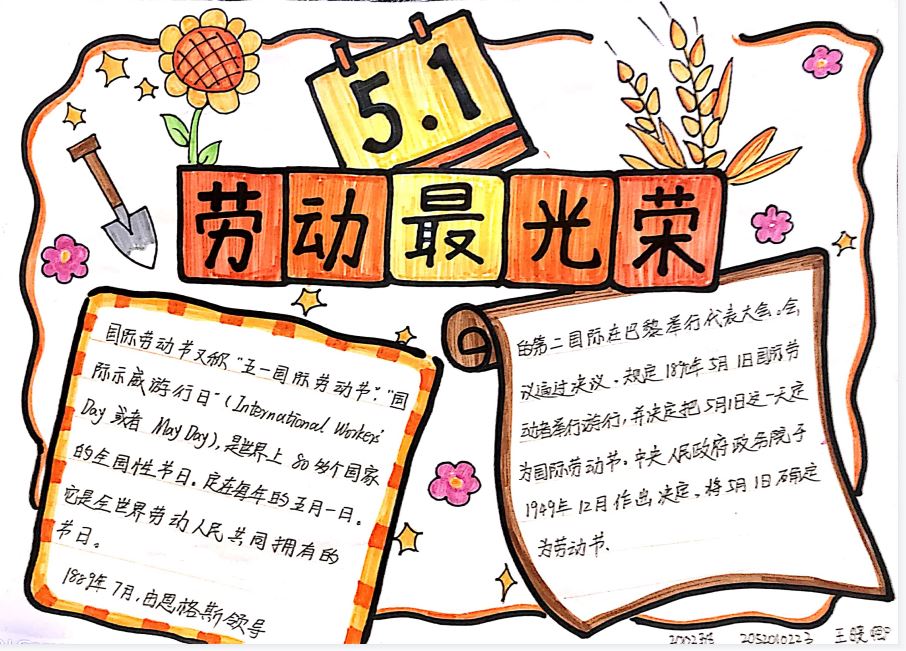 5.1
劳动最光荣
国际劳动节又称"五一国际劳动节"."国
际示威游行日"(International Workers'
Day 或者 May Day),是世界上 80 多个国家
的全国性节日。定在每年的五月一日。
它是全世界劳动人民共同拥有的
节日。
1889年7月,由恩格斯领导
的第二国际在巴黎举行代表大会。会
议通过决议。规定1890年5月1日国际劳
动者举行游行,并决定把5月1日这一天定
为国际劳动节。中央人民政府政务院于
1949年12月作出决定,将5月1日确定
为劳动节.
2052010223 王晓